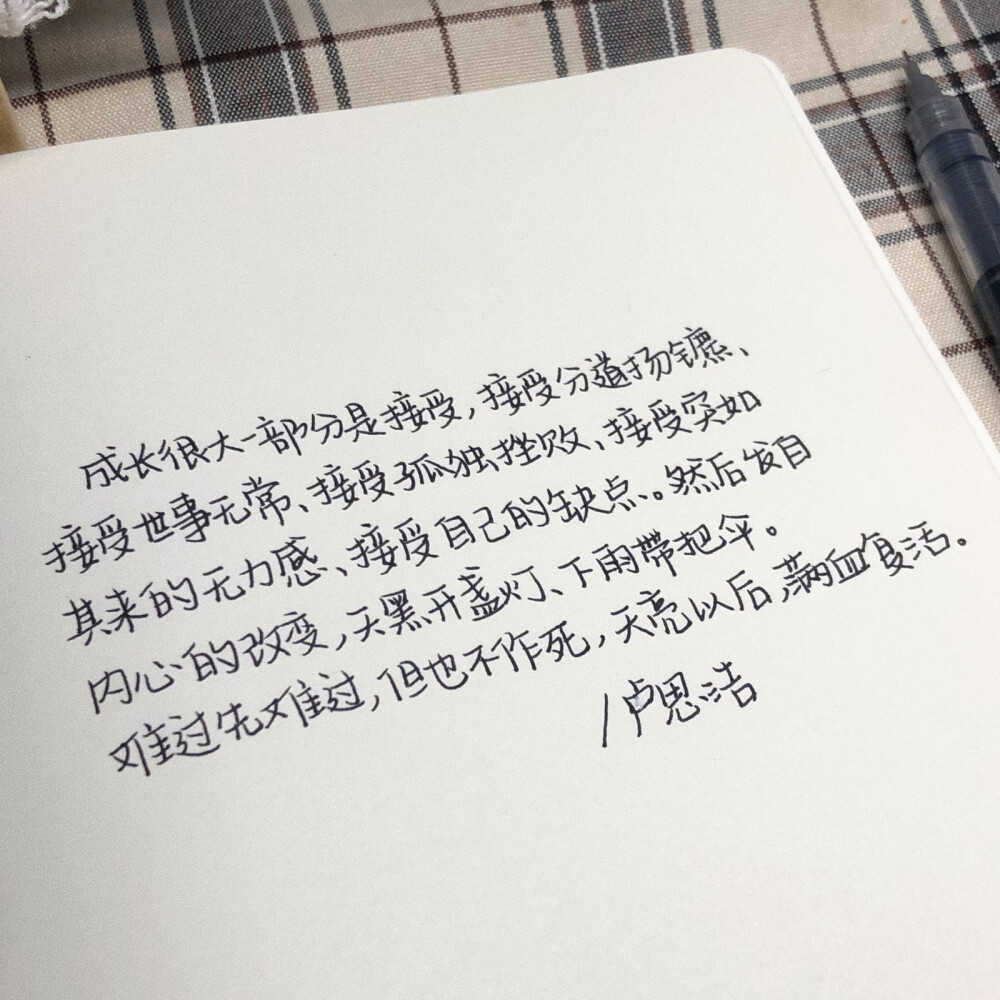 成长很大一部分是接受,接受分道扬镳、
接受世事无常、接受孤独挫败、接受突如
其来的无力感、接受自己的缺点。然后发自
内心的改变,天黑开盏灯、下雨带把伞。
难过先难过,但也不作死,天亮以后,满血复活。
/卢思浩